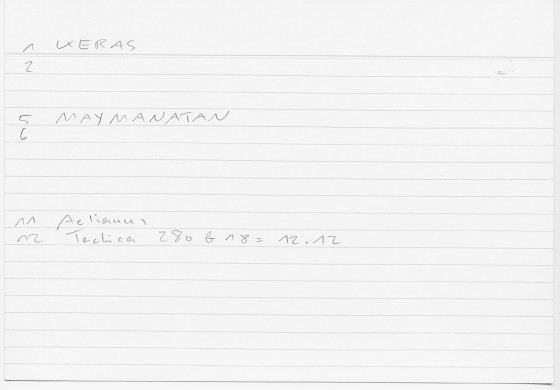 1 UXERAS
2
5 MAYMANATAN
6
11 Aelianus
12 Tactica 280 G 18 = 12.12